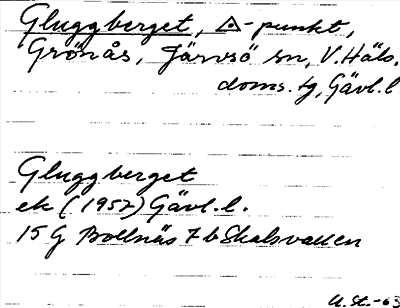 Gluggberget, △-punkt,
Grönås, Järvsö sn, V. Häls.
doms. tg, Gävl. l.
Gluggberget
ek (1957) Gävl. l.
15 G Bollnäs 7 b Skalsvallen
U. St. -63